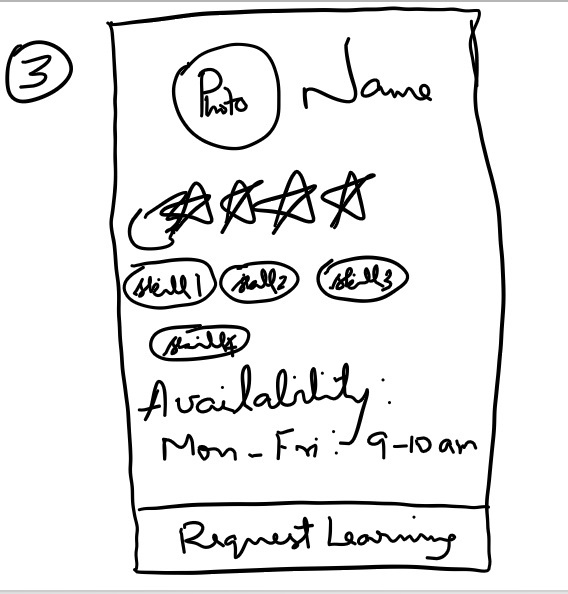 3
Photo Name
skill 1 skill2 skill3
skill4
Availability:
Mon - Fri :- 9-10 am
Request Learning